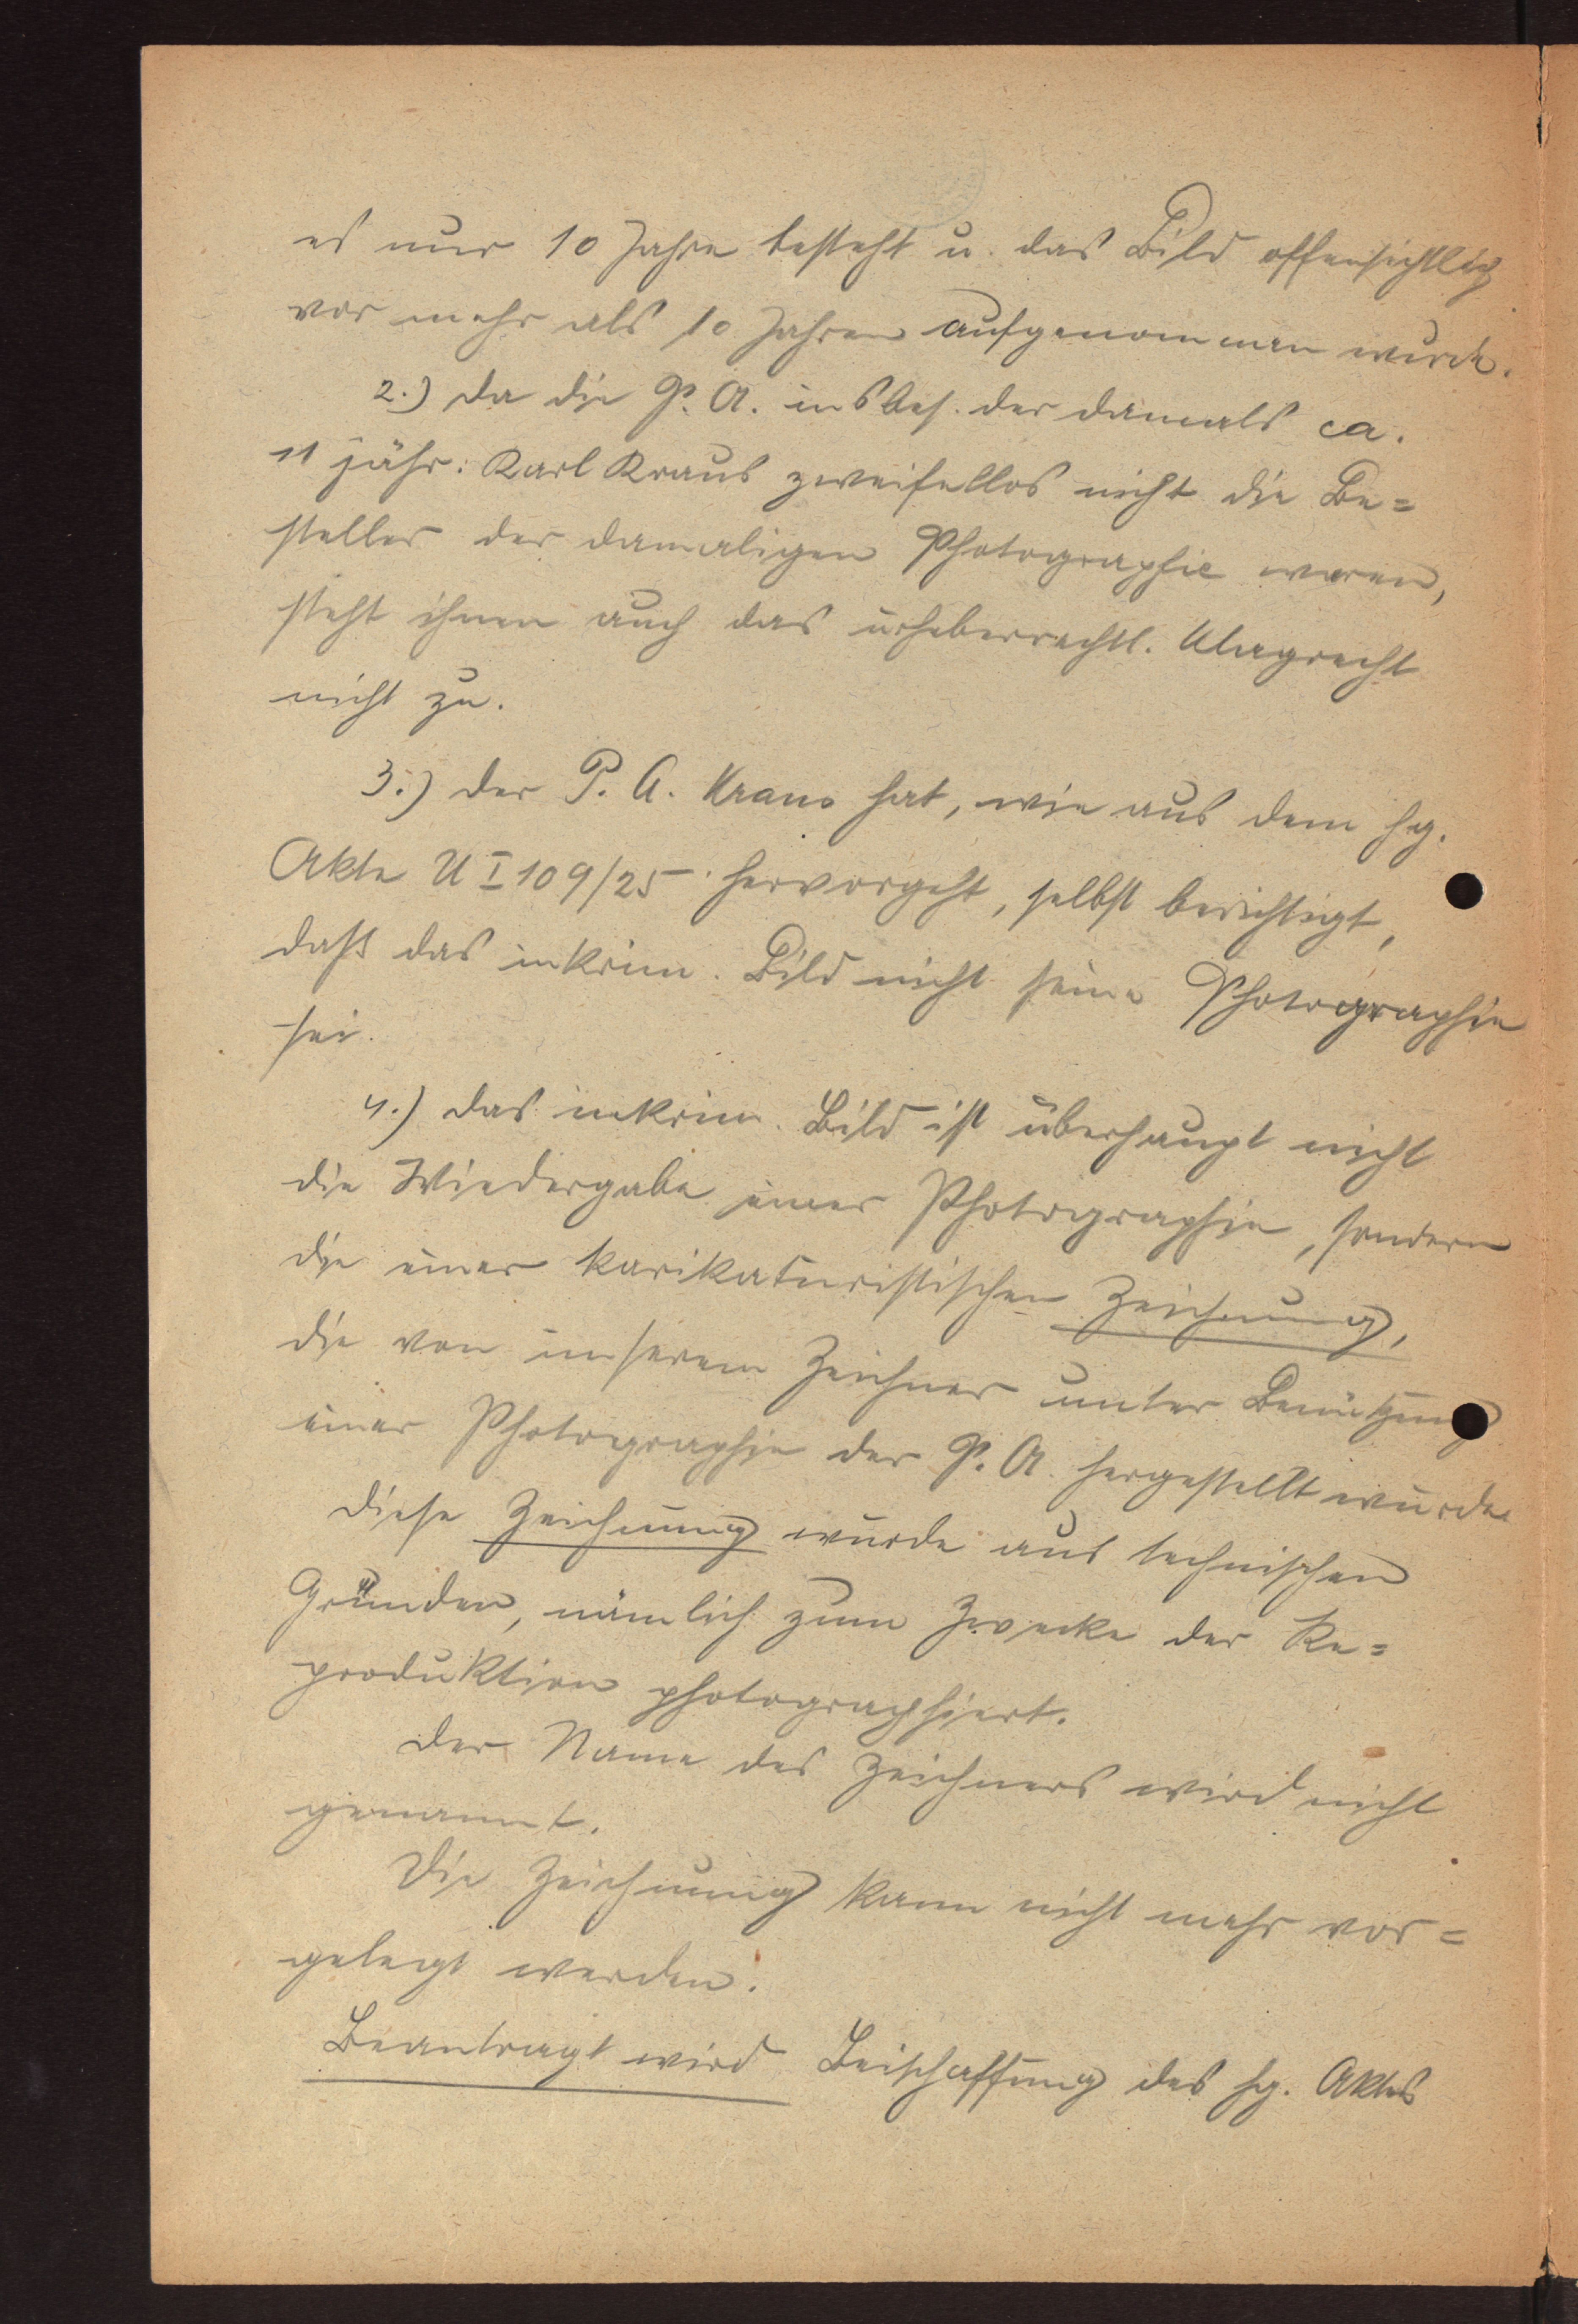 es nur 10 Jahre besteht u. das Bild offensichtlich
vor mehr als 10 Jahren aufgenommen wurde.
2.) Da die P. A. insbes. der damals ca.
11 jähr. Karl Kraus zweifellos nicht die Be=
steller der damaligen Photographie waren,
steht ihnen auch das urheberrechtl. Klagrecht
nicht zu.
3.) Der P. A. Kraus hat, wie aus dem hg.
Akte U I 109/25 hervorgeht, selbst berichtigt,
daß das inkrim. Bild nicht seine Photographie
sei.
4.) Das inkrim. Bild ist überhaupt nicht
die Wiedergabe einer Photographie, sondern
die einer karikaturistischen Zeichnung,
die von unserem Zeichner unter Benützung
einer Photographie der P. A. hergestellt wurde
Diese Zeichnung wurde aus technischen
Gründen, nämlich zum Zwecke der Re=
produktion photographiert.
Der Name des Zeichners wird nicht
genannt.
Die Zeichnung kann nicht mehr vor=
gelegt werden.
Beantragt wird Beischaffung des hg. Aktes